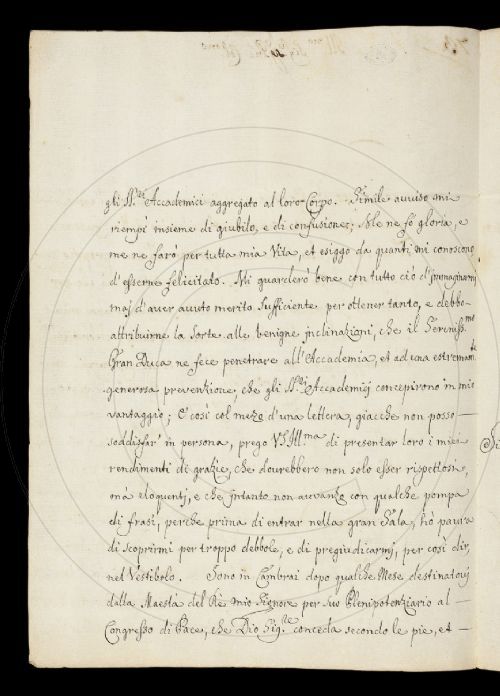 gli SS.ri Accademici aggregato al loro Corpo. Simile avviso mi
riempì insieme di giubilo, e di confusione; Me ne fò gloria, e
me ne farò per tutta mia Vita, et esiggo da quanti mi conoscono
d'esserne felicitato. Mi guarderò bene con tutto ciò d'immaginarmj
maj d'aver avuto merito sufficiente per ottener tanto, e debbo
attribuirne la sorte alle benigne jnclinazionj, che il Sereniss.mo
Gran Duca ne fece penetrare all'Accademia, et ad una estremam.te
generosa prevenzione, che gli SS.ri Accademicj concepirono in mio
vantaggio; E così col mezo d'una lettera, giacche non posso —
soddisfar' in persona, prego VS Ill.ma di presentar loro i miei
rendimenti di grazie, che dovrebbero non solo esser rispettosi,
mà eloquentj, e che jntanto non avvanzo con qualche pompa
di frasi, perche prima di entrar nella gran Sala, hò paura
di scoprirmi per troppo debbole, e di pregiudicarmj, per così dir,
nel Vestibolo. Sono in Cambrai dopo qualche Mese destinatovj
dalla Maestà del Rè mio Signore per suo Plenipotenziario al —
Congresso di Pace, che Dio Sig.re conceda secondo le pie, et —